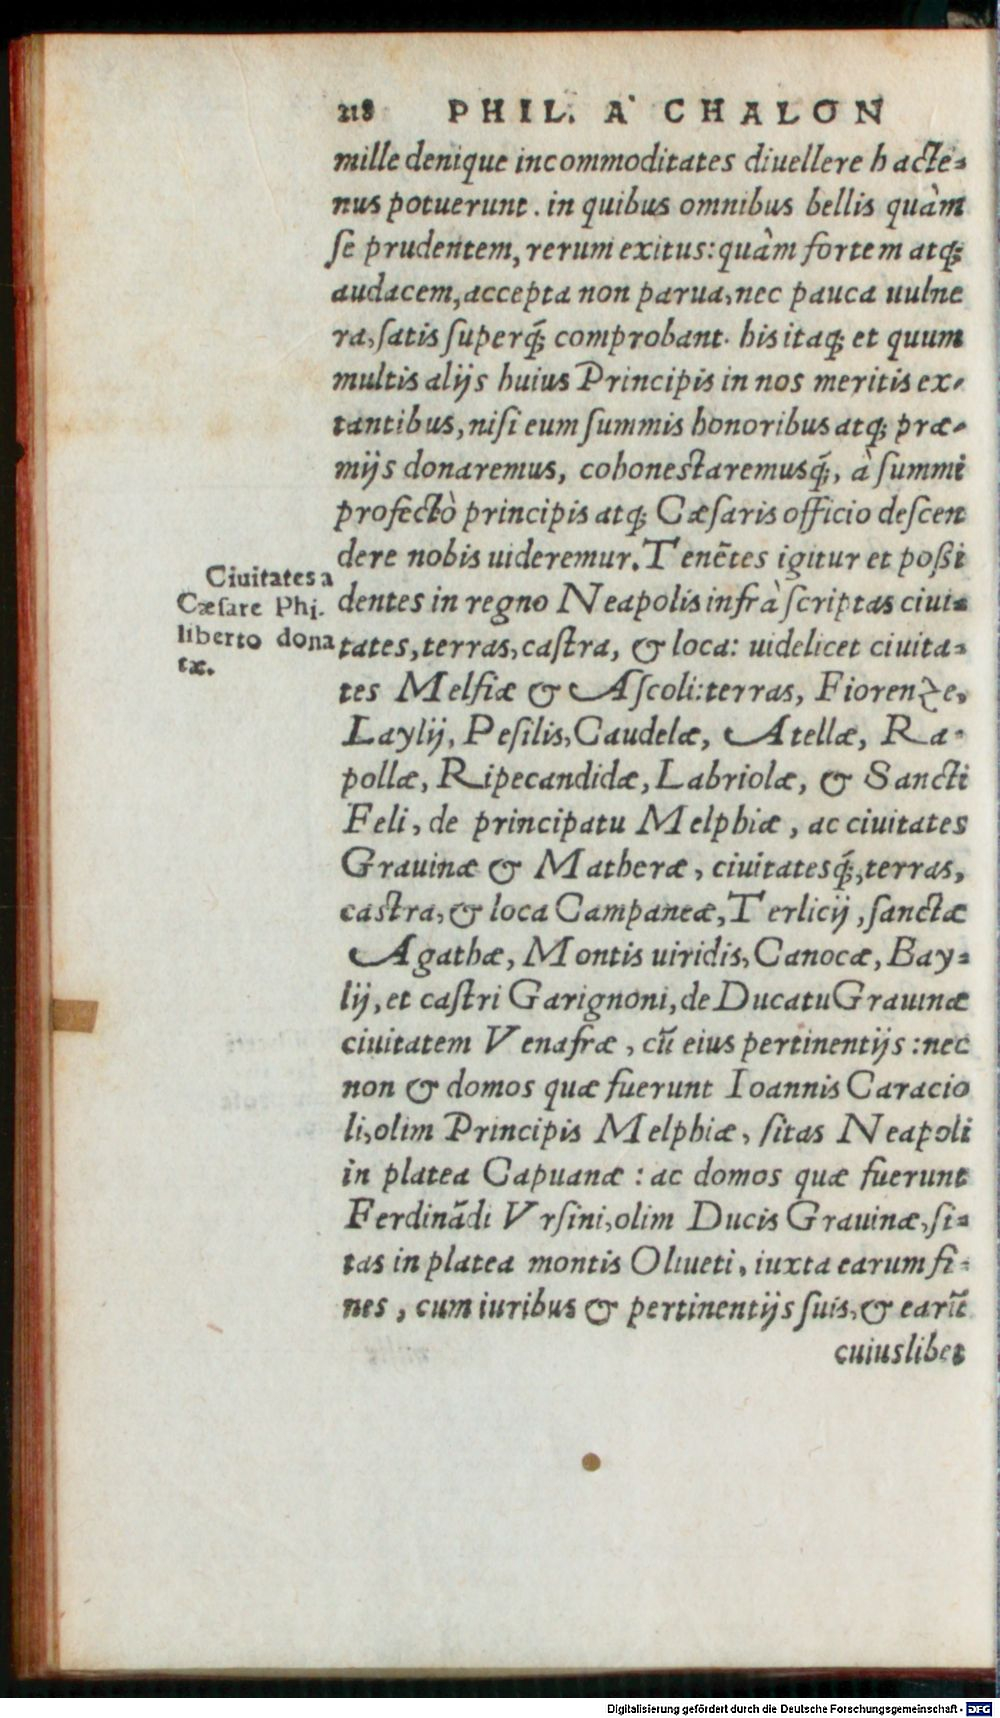 218 PHIL. A' CHALON
mille denique incommoditates diuellere hacte-
nus potuerunt. in quibus omnibus bellis quàm
ſe prudentem, rerum exitus: quàm fortem atq;
audacem, accepta non parua, nec pauca uulne
ra, ſatis ſuperq́; comprobant. his itaq; et quum
multis alijs huius Principis in nos meritis ex-
tantibus, niſi eum ſummis honoribus atq; præ-
mijs donaremus, cohoneſtaremusq́;, à ſummi
profectò principis atq; Cæſaris officio deſcen
dere nobis uideremur. Tenẽtes igitur et poßi
dentes in regno Neapolis infrà ſcriptas ciui-
tates, terras, caſtra, & loca: uidelicet ciuita-
tes Melfiæ & Aſcoli: terras, Fiorenze,
Laylij, Peſilis, Caudelæ, Atellæ, Ra-
pollæ, Ripecandidæ, Labriolæ, & Sancti
Feli, de principatu Melphiæ, ac ciuitates
Grauinæ & Matheræ, ciuitatesq́;, terras,
caſtra, & loca Campaneæ, Terlicij, ſanctæ
Agathæ, Montis uiridis, Canocæ, Bay-
lij, et caſtri Garignoni, de Ducatu Grauinæ
ciuitatem Venafræ, cũ eius pertinentijs: nec
non & domos quæ fuerunt Ioannis Caracio
li, olim Principis Melphiæ, ſitas Neapoli
in platea Capuanæ: ac domos quæ fuerunt
Ferdinãdi Vrſini, olim Ducis Grauinæ, ſi-
tas in platea montis Oliueti, iuxta earum fi-
nes, cum iuribus & pertinentijs ſuis, & earũ
cuiuslibet
Ciuitates a
Cæſare Phi.
liberto dona
tæ.
Digitalisierung gefördert durch die Deutsche Forschungsgemeinschaft - DFG